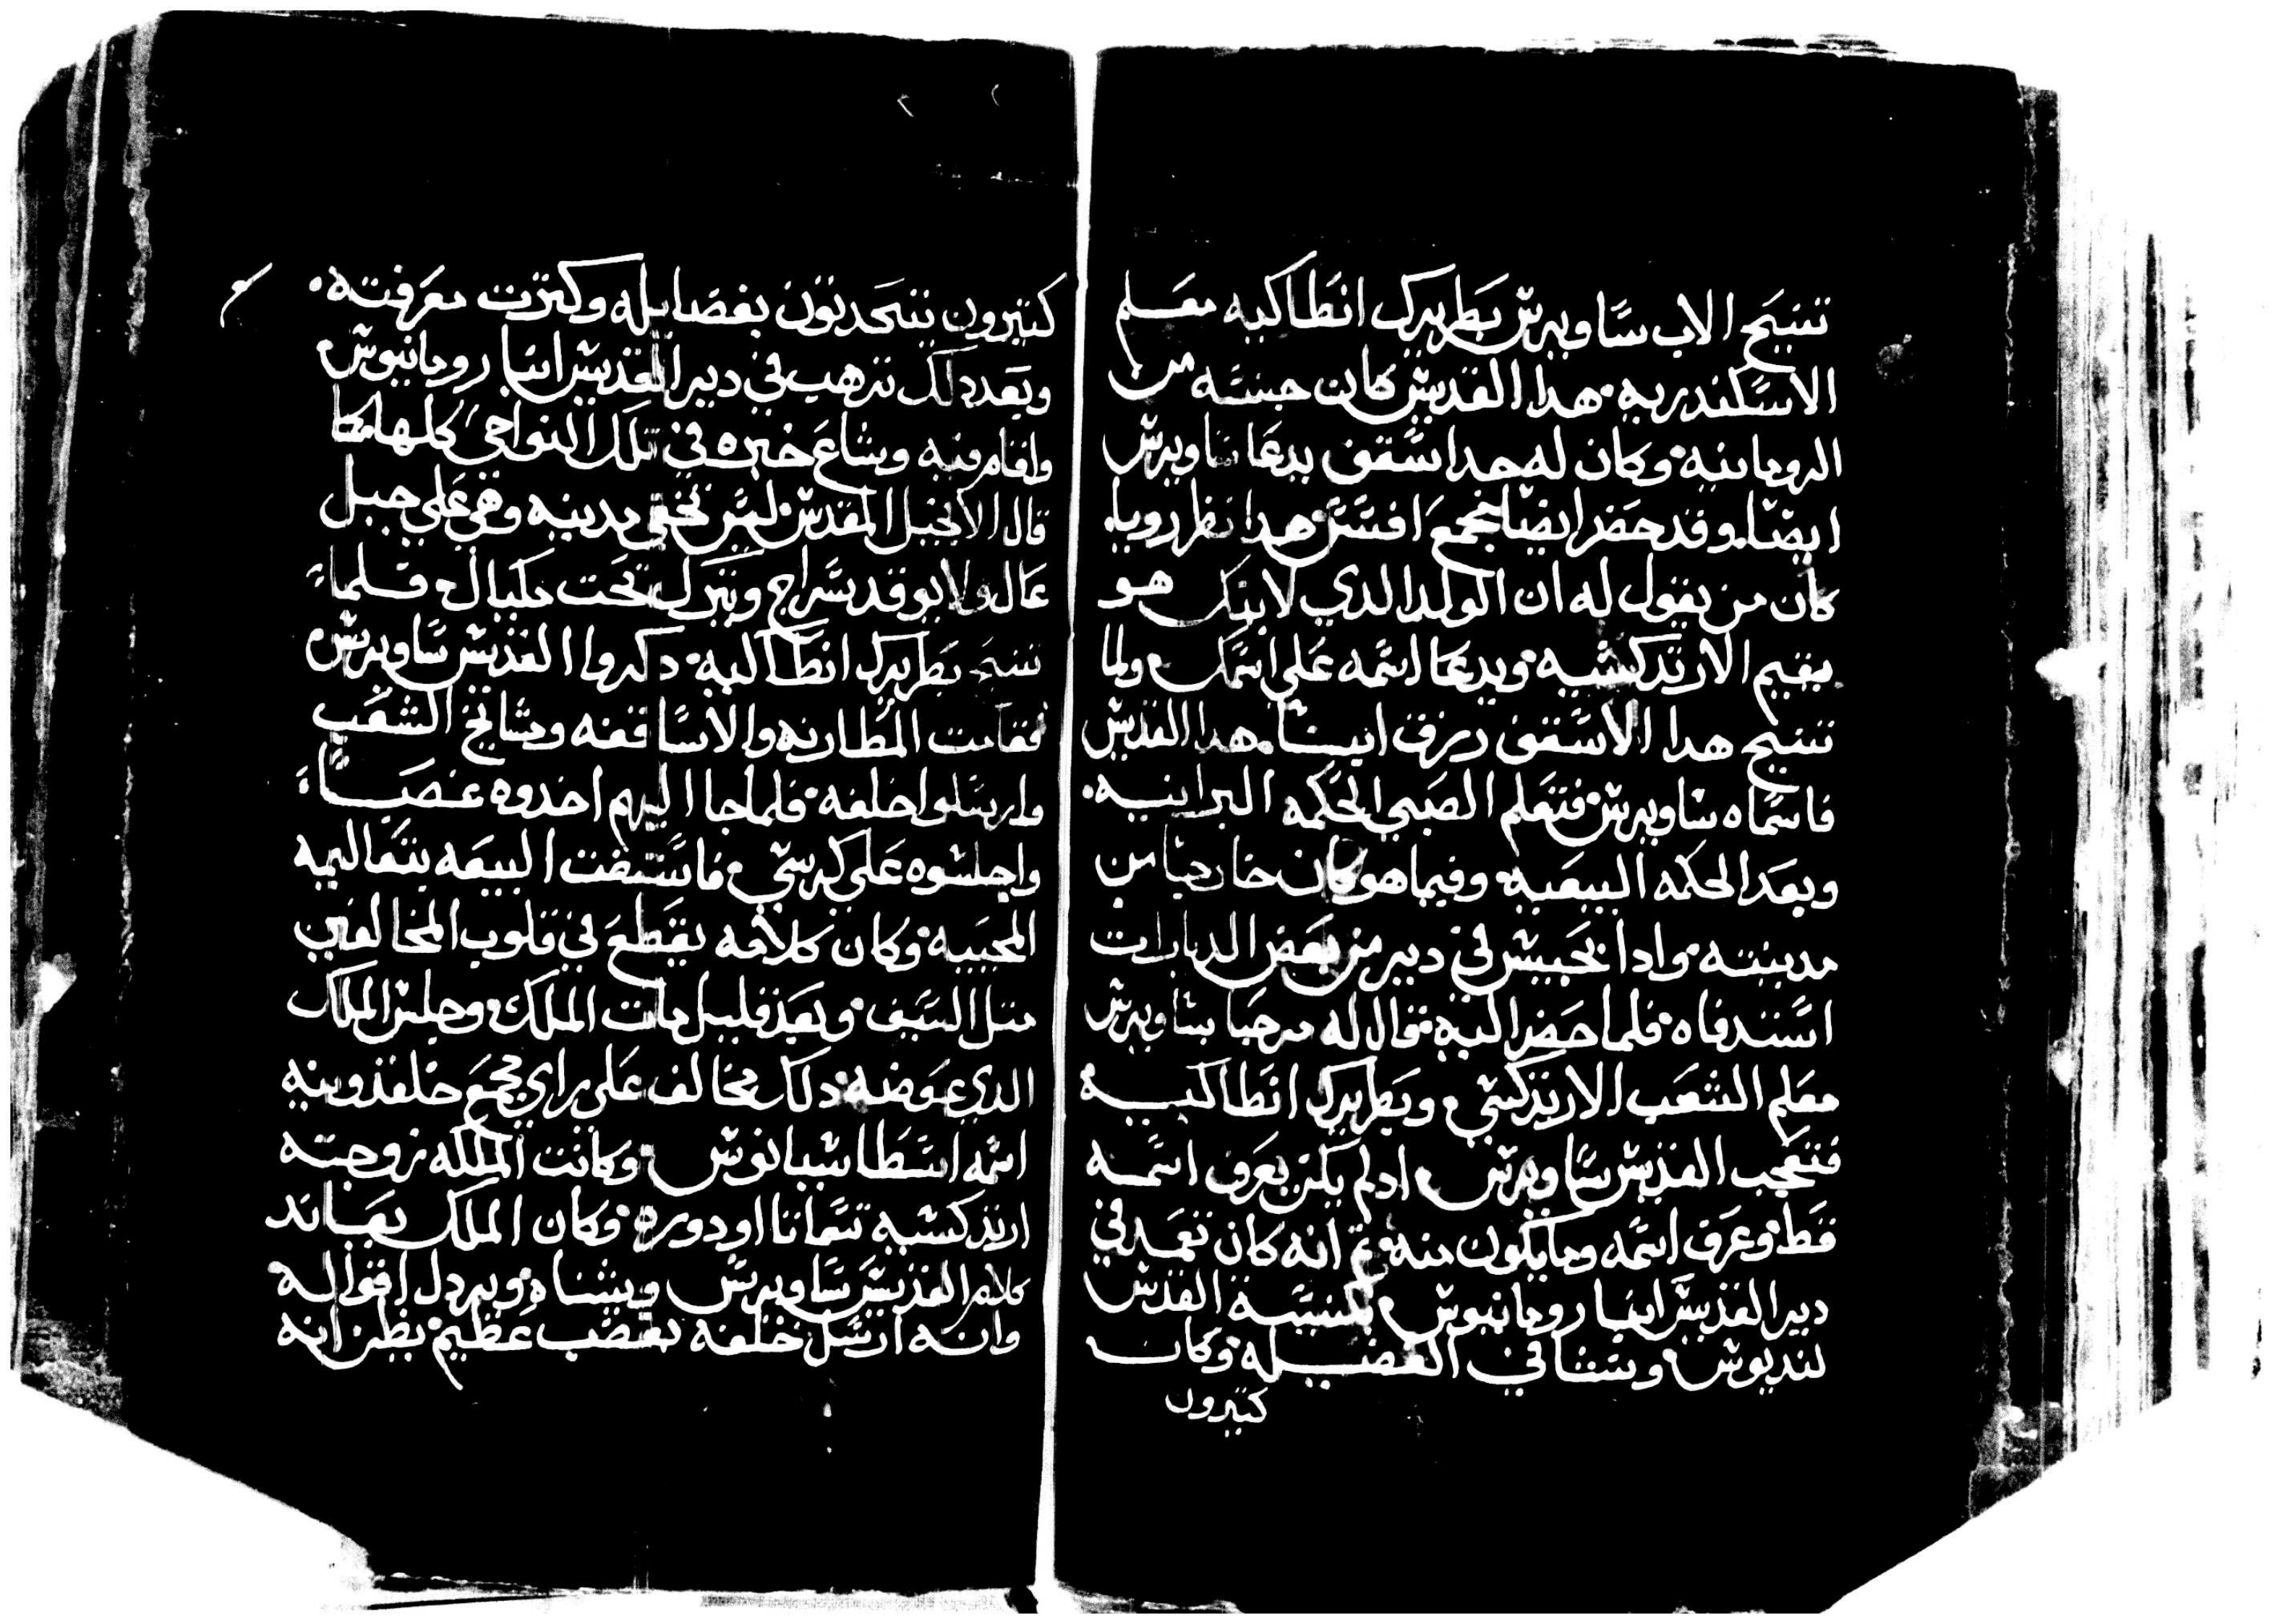 تنيح الاب ساويرس بطريرك انطاكيه معلم
الاسكندريه هدا القديس كان جنسه من
الرومانيه وكان له جد اسقف يدعا ساويرس
ايضا وقد حضر ايضا مجمع افسس هدا نظر رويا
كان من يقول له ان الولد الدي لابنك هو
يقيم الارتدكسيه ويدعا اسمه علي اسمك ولما
تنيح هدا الاسقف رزق ابنه هدا القديس
فاسماه ساويرس فتعلم الصبي الحكمه البرانيه
وبعد الحكمه البيعيه وفيما هو كان خارجا من
مدينته وادا بحبيس في دير من بعض الديارات
استدعاه فلما حضر اليه قال له مرحبا بساويرس
معلم الشعب الارتدكسي وبطريرك انطاكيه
فتعجب القديس ساويرس ادلم يكن يعرف اسمه
قط وعرف اسمه وما يكون منه تم انه كان تعمد في
دير القديس انبا رومانيوس بكنيسة القديس
لنديوس ونشا في الفضيله وكان
كتيرون
كتيرون يتحدتون بفضايله وكترت معرفته
وبعد دلك ترهب في دير القديس انبا رومانيوس
واقام فيه وشاع خبره في تلك النواحي كلها كما
قال الانجيل المقدس ليس تخفي مدينه وهي علي جبل
عال ولا يوقد سراج ويترك تحت مكيال فلما
تنيح بطريرك انطاكيه دكروا القديس ساويرس
فقامت المطارنه والاساقفه ومشايخ الشعب
وارسلوا خلفه فلما جا اليهم اخدوه غصبا
واجلسوه علي كرسي فاستضت البيعه بتعاليمه
المحييه وكان كلامه يقطع في قلوب المخالفين
متل السيف وبعد قليل مات الملك وجلس الملك
الدي عوضه دلك مخالف علي راي مجمع خلقدونيه
اسمه اسطاسيانوس وكانت الملكه زوجته
ارتدكسيه تسما تااودوره وكان الملك يعاند
كلام القديس ساويرس ويشناه ويردل اقواله
وانه ارسل خلفه بغضب عظيم يظن انه